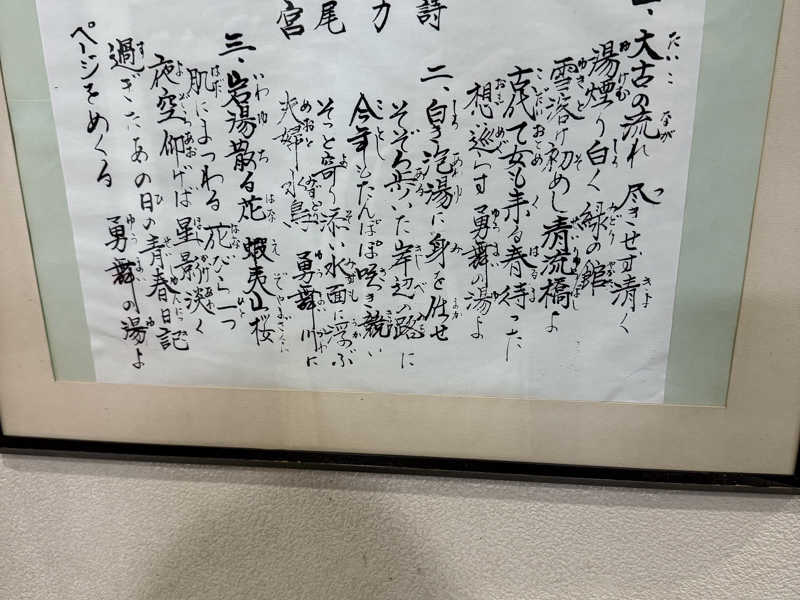 詩
力
尾
宮
一、太古の流れ 尽きせず清く
湯煙り白く 緑の館
雪溶け初めし 清流橋よ
古代乙女も来る春待った
想い巡らす 勇舞の湯よ
二、白き泡湯に身を任せ
そぞろ歩いた岸辺の路に
今年もたんぽぽ咲き競い
そっと寄り添い水面に浮ぶ
夫婦水鳥 勇舞川に
三、岩湯散る花 蝦夷山桜
肌にまつわる花びら一つ
夜空仰げば星影淡く
過ぎたあの日の青春日記
ページをめくる 勇舞の湯よ